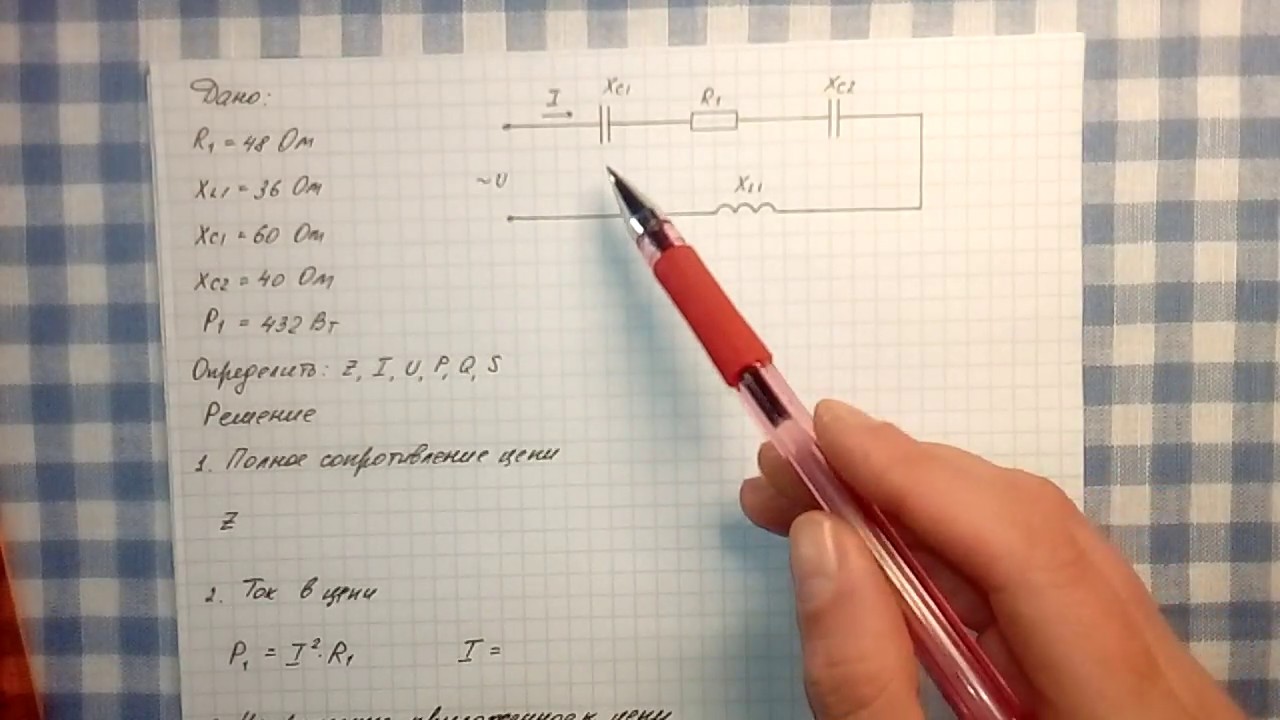 Дано:
R₁ = 48 Ом
XL1 = 36 Ом
XC1 = 60 Ом
XC2 = 40 Ом
P₁ = 432 Вт
Определить: Z, I, U, P, Q, S
Решение
1. Полное сопротивление цепи
Z
2. Ток в цепи
P₁ = I²·R₁ I =
I XC1 R₁ XC2
~U XL1